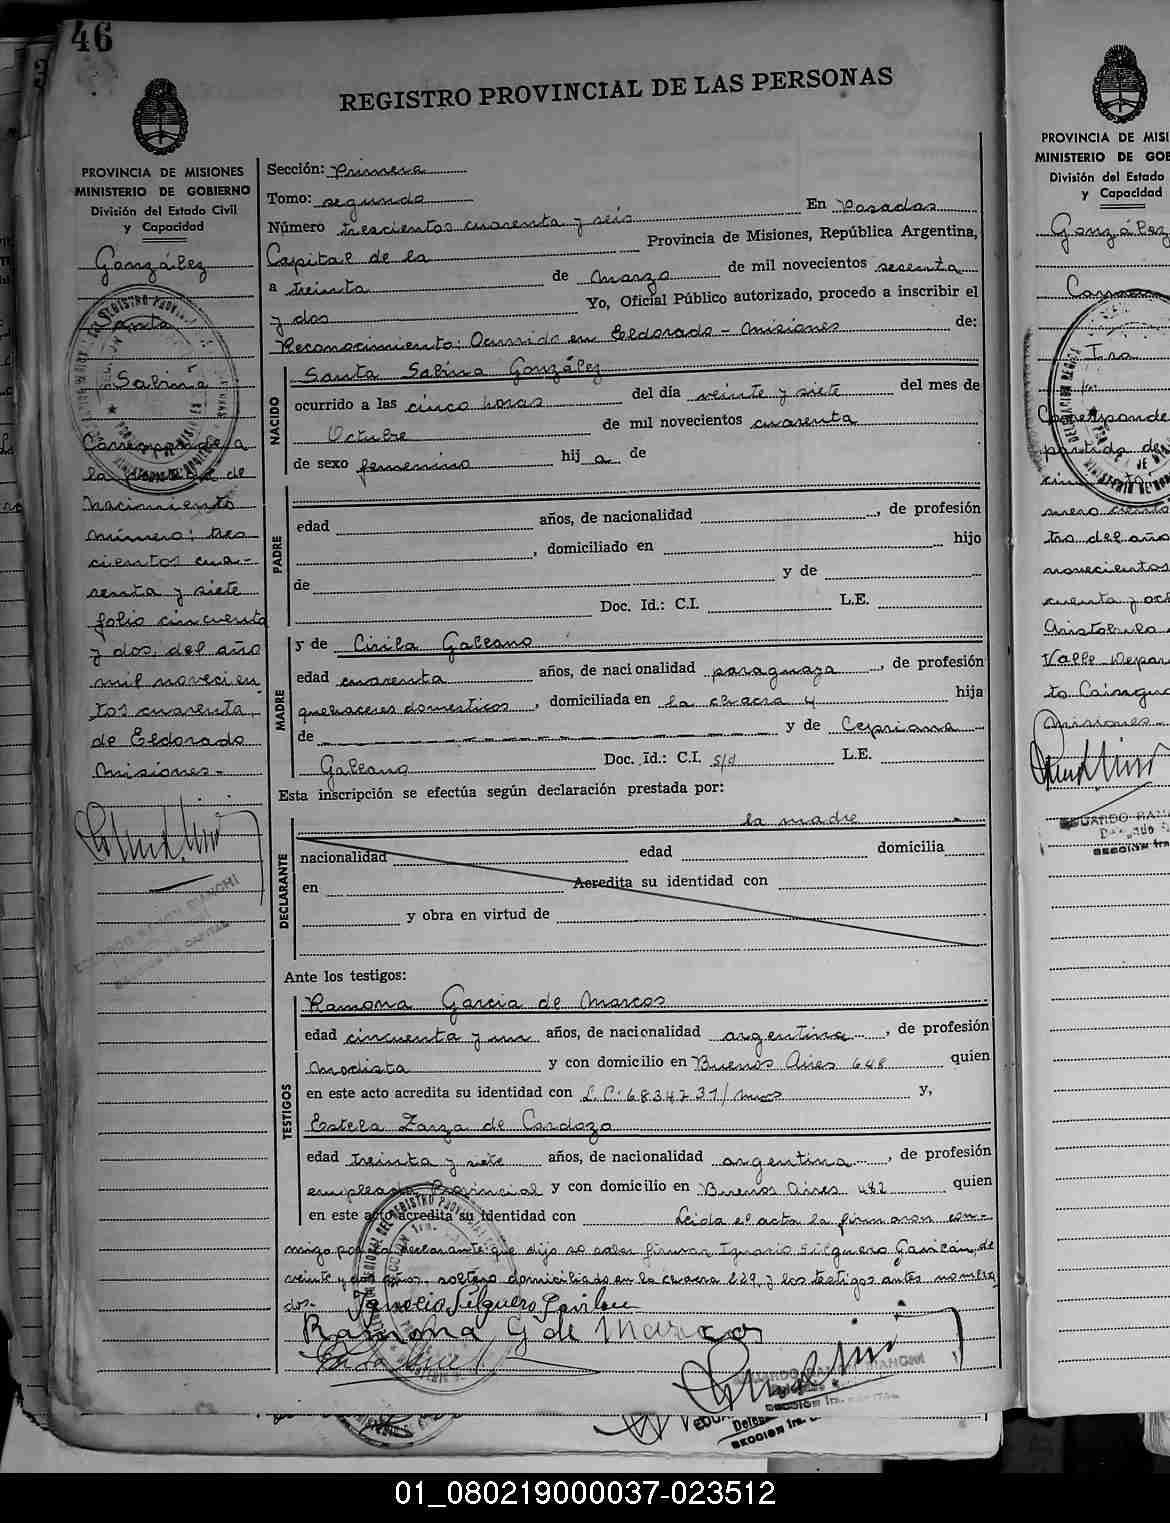 46
REGISTRO PROVINCIAL DE LAS PERSONAS
PROVINCIA DE MISIONES
MINISTERIO DE GOBIERNO
División del Estado Civil
y Capacidad
González
Santa
Sabina
Corresponde a
la partida de
Nacimiento
número: tres
cientos cua-
renta y siete
folio cincuenta
y dos, del año
mil noveci en
tos cuarenta,
de Eldorado
Misiones.-
Sección: Primera
Tomo: segundo
Número trescientos cuarenta y seis En Posadas
Capital de la Provincia de Misiones, República Argentina,
a treinta de Marzo de mil novecientos secenta
y dos Yo, Oficial Público autorizado, procedo a inscribir el
Reconocimiento: Ocurrido en Eldorado - Misiones de:
NACIDO
Santa Sabina González
ocurrido a las cinco horas del día veinte y siete del mes de
Octubre de mil novecientos cuarenta
de sexo femenino hij a de
PADRE
edad años, de nacionalidad , de profesión
, domiciliado en hijo
de y de
Doc. Id.: C.I. L.E.
MADRE
y de Cirila Galeano
edad cuarenta años, de nacionalidad paraguaya , de profesión
quehaceres domesticos , domiciliada en la chacra 4 hija
de y de Cepriana
Galeano Doc. Id.: C.I. s/d L.E.
Esta inscripción se efectúa según declaración prestada por:
DECLARANTE
la madre
nacionalidad edad domicilia
en Acredita su identidad con
y obra en virtud de
Ante los testigos:
TESTIGOS
Ramona Garcia de Marcos
edad cincuenta y un años, de nacionalidad argentina , de profesión
Modista y con domicilio en Buenos Aires 648 quien
en este acto acredita su identidad con L.C: 6834237/ mnes y,
Estela Zarza de Cardozo
edad treinta y siete años, de nacionalidad argentina , de profesión
empleada Provincial y con domicilio en Buenos Aires 482 quien
en este acto acredita su identidad con Leida el acta la firmaron con-
migo por la declarante que dijo no saber firmar Ignacio Silguero Gavilan, de
veinte y dos años, soltero domiciliado en la chacra 229, y los testigos antes nombra
dos.- Ignacio Silguero Gavilan
Ramona G de Marcos
EDUARDO RAMON BIANCHI
SECCION 1ra. CAPITAL
PROVINCIA DE MISI
MINISTERIO DE GOB
División del Estado
y Capacidad
González
Ira
Corresponde
partida de
mero ciento
tro del año
novecientos
cuenta y och
Aristobulo
Valle Depar
to Caingua
Misiones
EDUARDO RAM
Delegado
SECCION 1ra
01_080219000037-023512